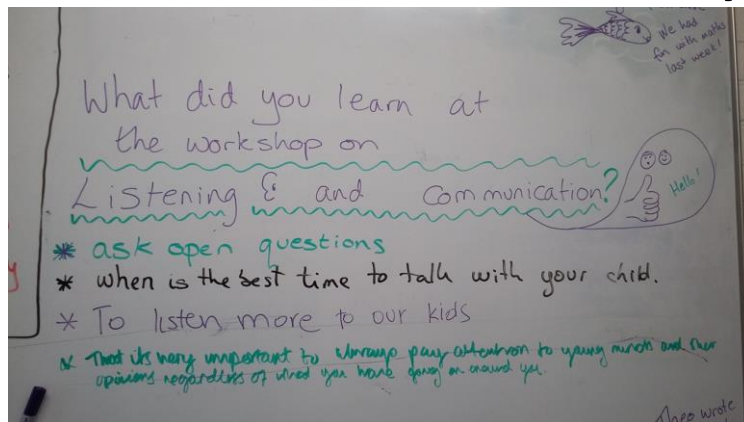 We had
fun with maths
last week!
What did you learn at
the workshop on
Listening & and communication?
Hello!
* ask open questions
* when is the best time to talk with your child.
* To listen more to our kids
* That its very important to always pay attention to young minds and their
opinions regardless of what you have going on around you.
Theo wrote